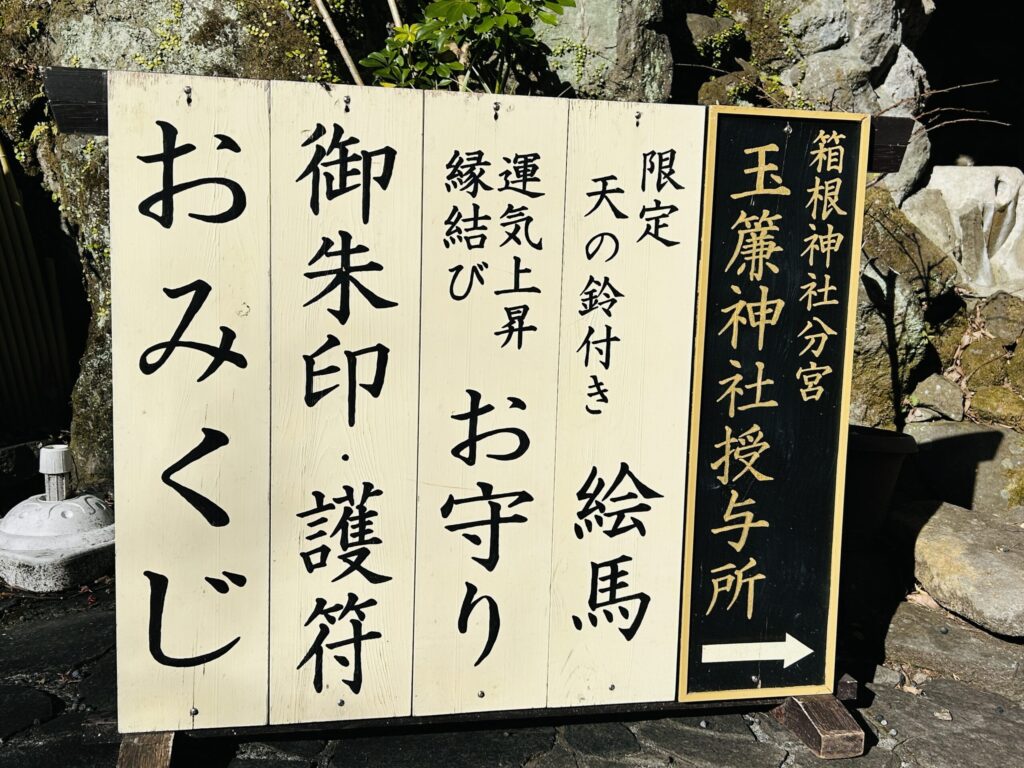 箱根神社分宮
玉簾神社授与所
限定
天の鈴付き
絵馬
運気上昇
縁結び
お守り
御朱印・護符
おみくじ